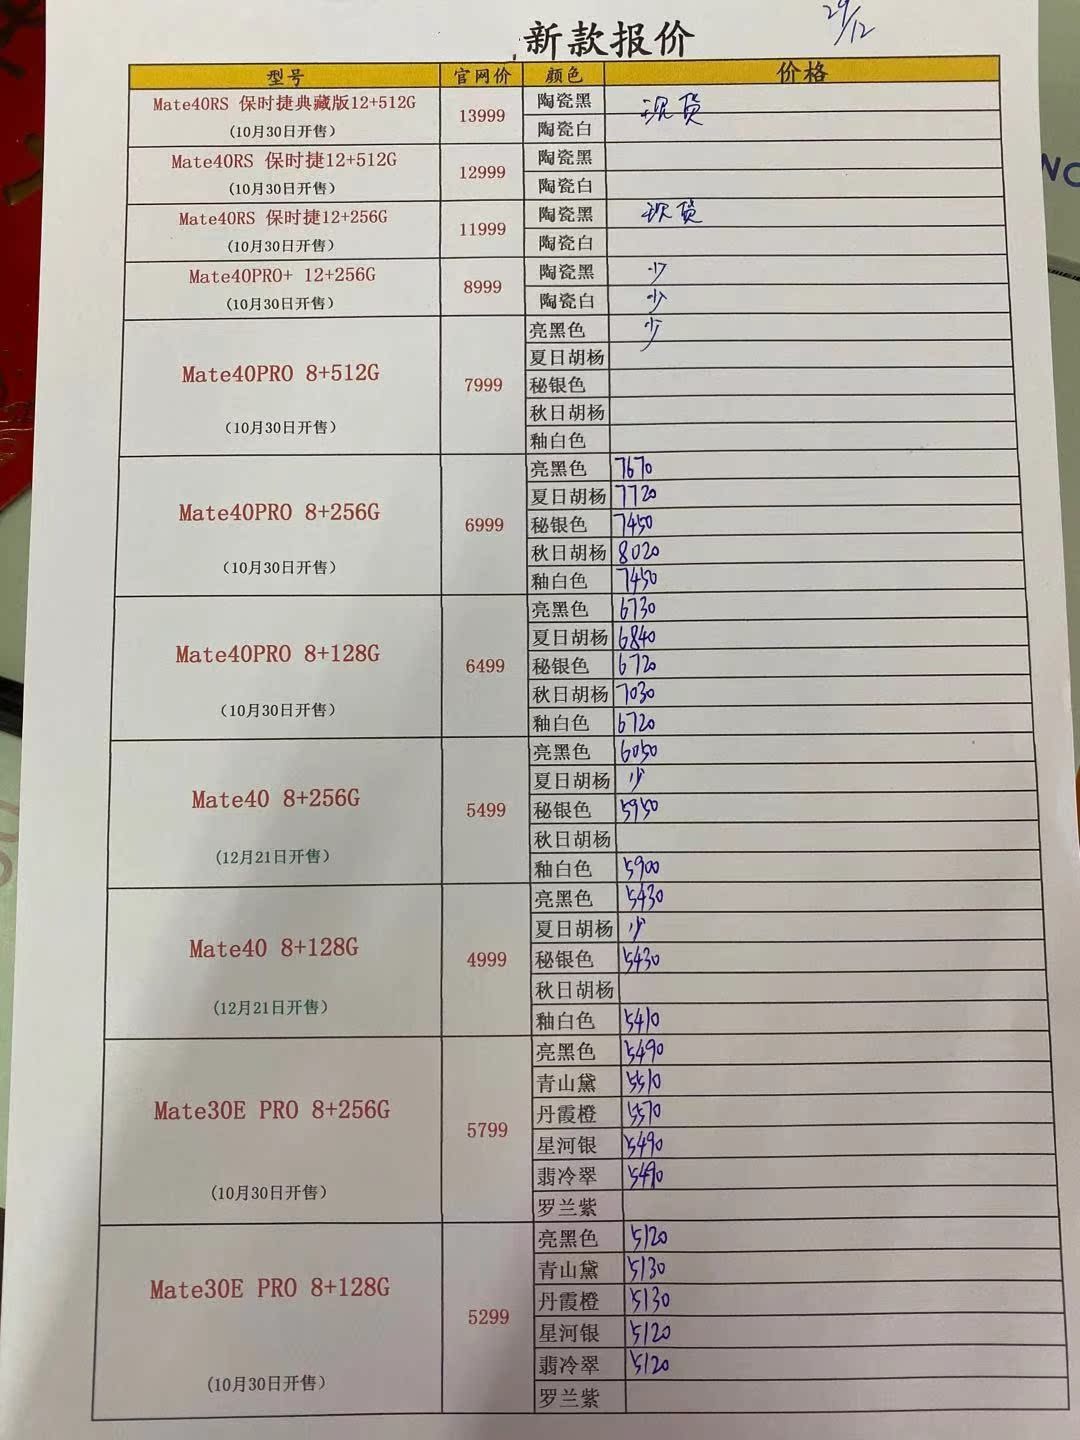 29/12
新款报价
型号 官网价 颜色 价格
Mate40RS 保时捷典藏版12+512G
(10月30日开售)
13999
陶瓷黑 现货
陶瓷白
Mate40RS 保时捷12+512G
(10月30日开售)
12999
陶瓷黑
陶瓷白
Mate40RS 保时捷12+256G
(10月30日开售)
11999
陶瓷黑 现货
陶瓷白
Mate40PRO+ 12+256G
(10月30日开售)
8999
陶瓷黑 少
陶瓷白 少
Mate40PRO 8+512G
(10月30日开售)
7999
亮黑色 少
夏日胡杨
秘银色
秋日胡杨
釉白色
Mate40PRO 8+256G
(10月30日开售)
6999
亮黑色 7670
夏日胡杨 7720
秘银色 7450
秋日胡杨 8020
釉白色 7450
Mate40PRO 8+128G
(10月30日开售)
6499
亮黑色 6730
夏日胡杨 6840
秘银色 6720
秋日胡杨 7030
釉白色 6720
Mate40 8+256G
(12月21日开售)
5499
亮黑色 6050
夏日胡杨 少
秘银色 5950
秋日胡杨
釉白色 5900
Mate40 8+128G
(12月21日开售)
4999
亮黑色 5430
夏日胡杨 少
秘银色 5430
秋日胡杨
釉白色 5410
Mate30E PRO 8+256G
(10月30日开售)
5799
亮黑色 5490
青山黛 5510
丹霞橙 5570
星河银 5490
翡冷翠 5490
罗兰紫
Mate30E PRO 8+128G
(10月30日开售)
5299
亮黑色 5120
青山黛 5130
丹霞橙 5130
星河银 5120
翡冷翠 5120
罗兰紫